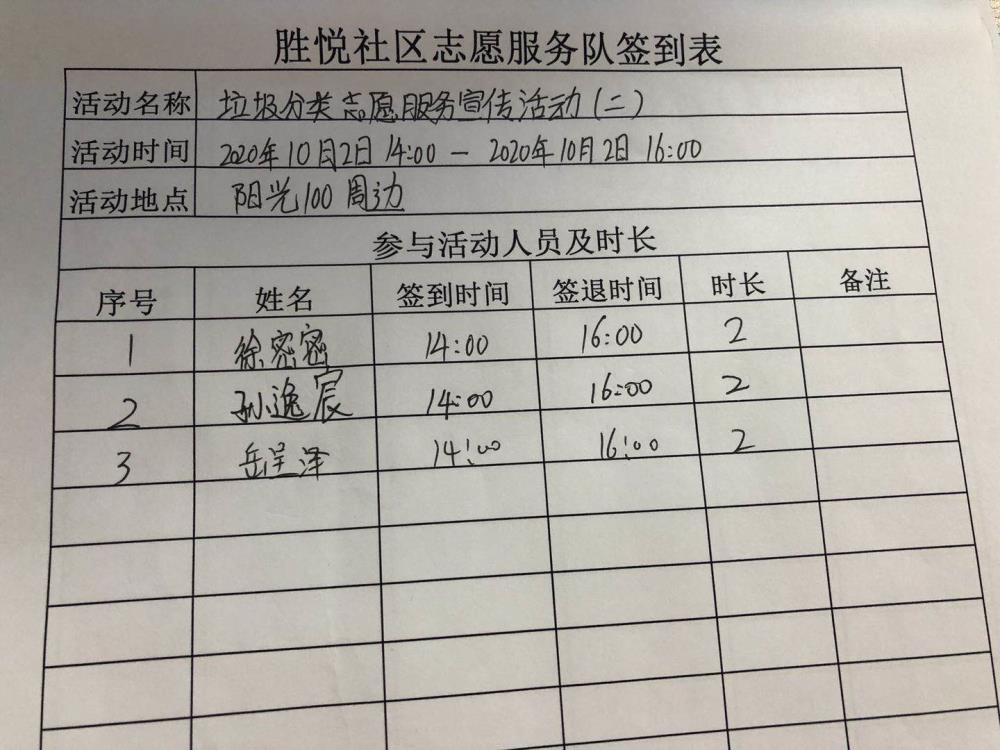 胜悦社区志愿服务队签到表
活动名称 垃圾分类志愿服务宣传活动(二)
活动时间 2020年10月2日 14:00 — 2020年10月2日 16:00
活动地点 阳光100周边
参与活动人员及时长
序号 姓名 签到时间 签退时间 时长 备注
1 徐密密 14:00 16:00 2
2 孙逸宸 14:00 16:00 2
3 岳呈泽 14:00 16:00 2